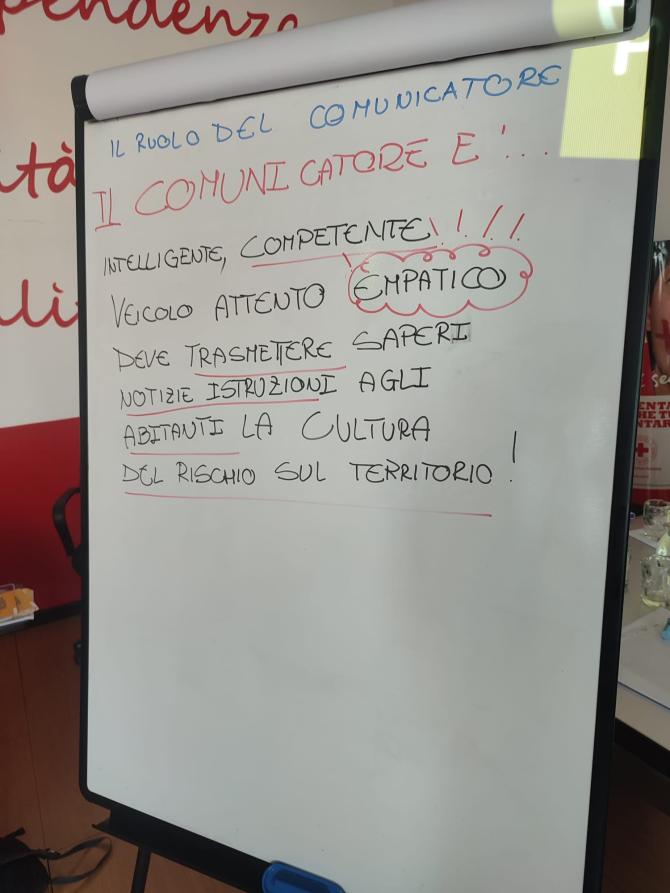 pendenza
ità
IL RUOLO DEL COMUNICATORE
IL COMUNICATORE E'...
INTELLIGENTE, COMPETENTE\!!!!
VEICOLO ATTENTO EMPATICO
DEVE TRASMETTERE SAPERI
NOTIZIE ISTRUZIONI AGLI
ABITANTI LA CULTURA
DEL RISCHIO SUL TERRITORIO!